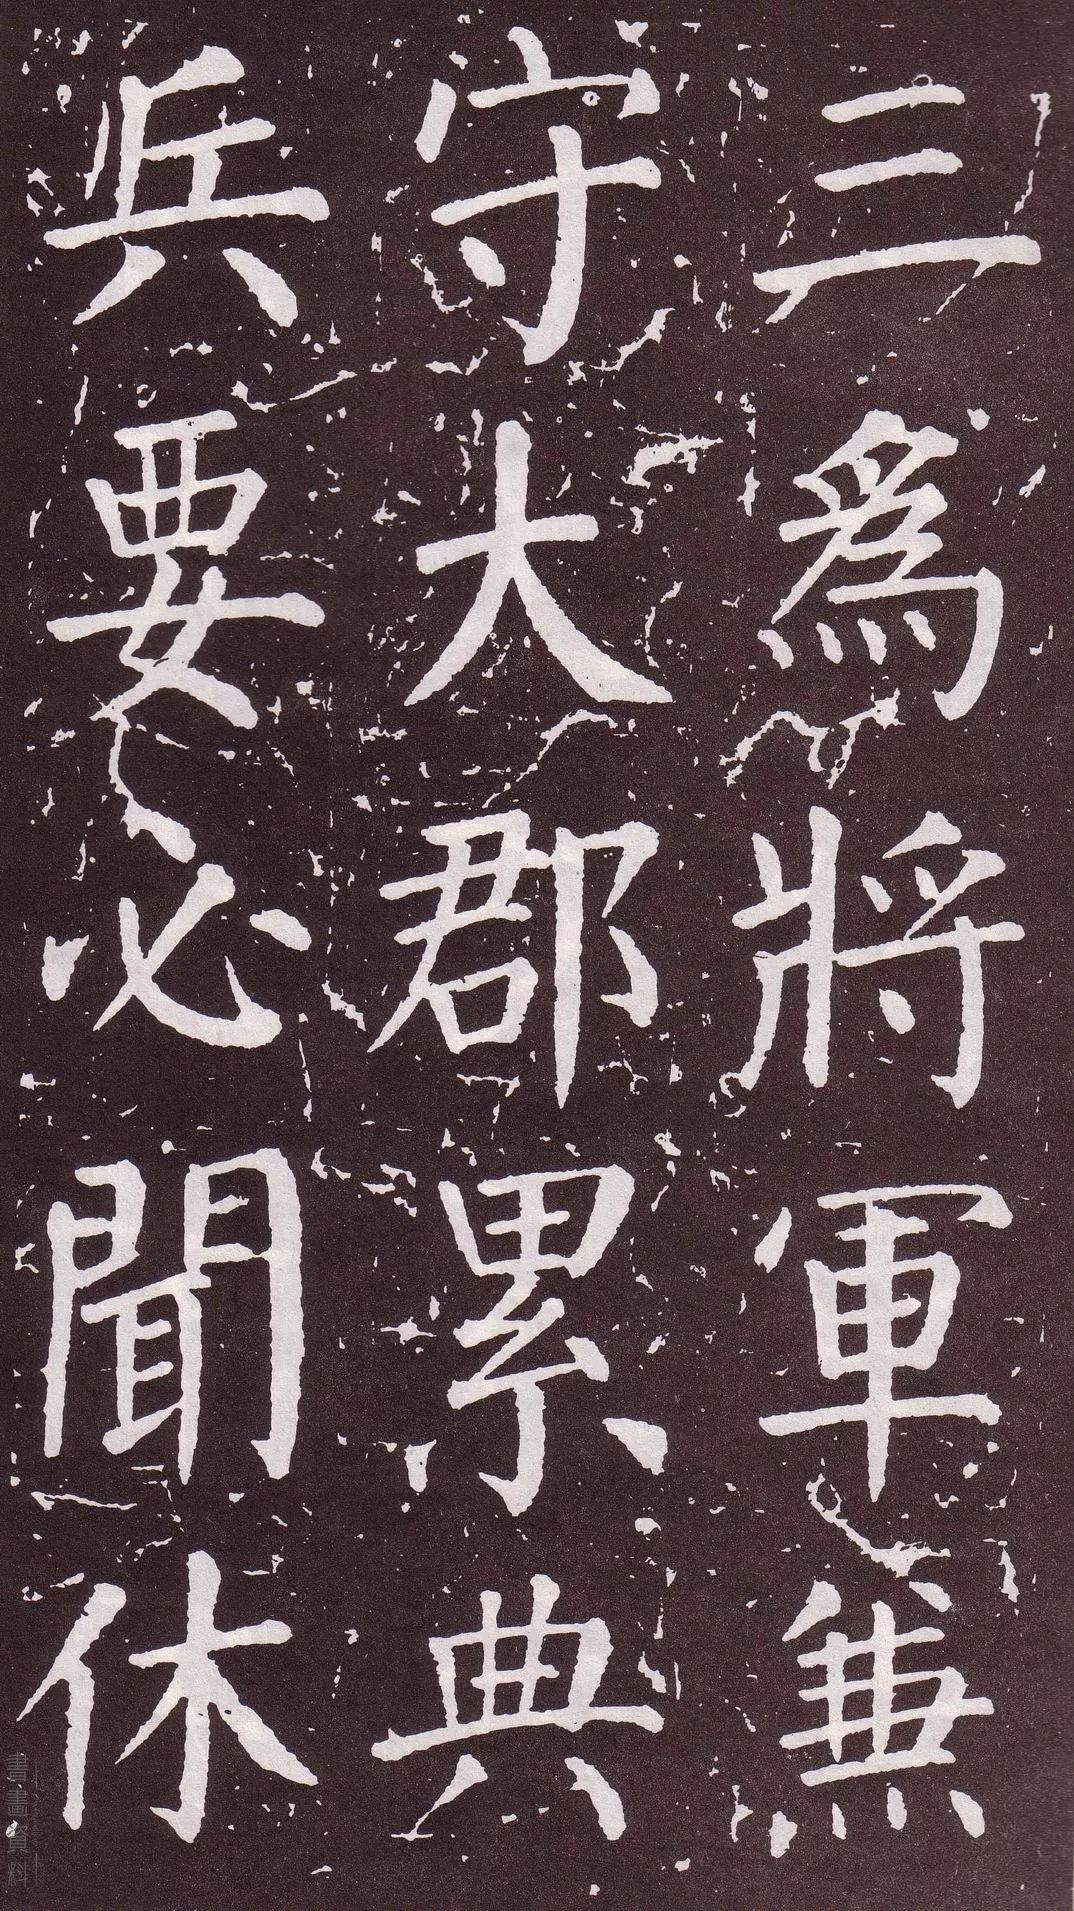 三爲將軍兼
守大郡累典
兵要必聞休
書畫資料